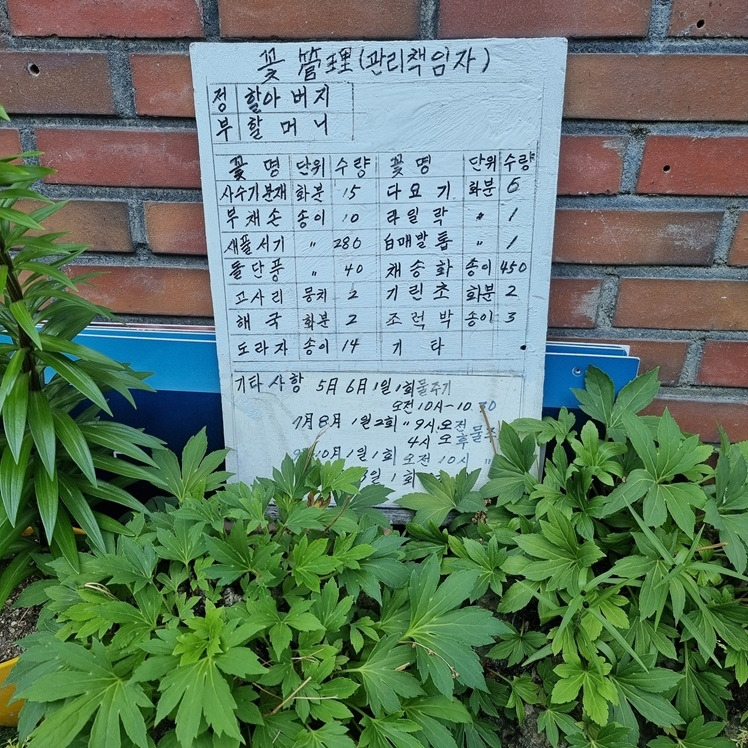 꽃 管理(관리책임자)
정 할아버지
부 할머니
꽃명 단위 수량 꽃명 단위 수량
사수기분재 화분 15 다요기 화분 6
부채손 송이 10 라일락 〃 1
새풀서기 〃 280 白매발톱 〃 1
돌단풍 〃 40 채송화 송이 450
고사리 뭉치 2 기린초 화분 2
해국 화분 2 조럭박 송이 3
도라자 송이 14 기타
기타사항 5月6月 1일1회 물주기
오전10시~10.30
7月8月 1일2회 〃 9시.오전
4시 오후 물주
9月10月1일1회 오전10시 〃
일1회